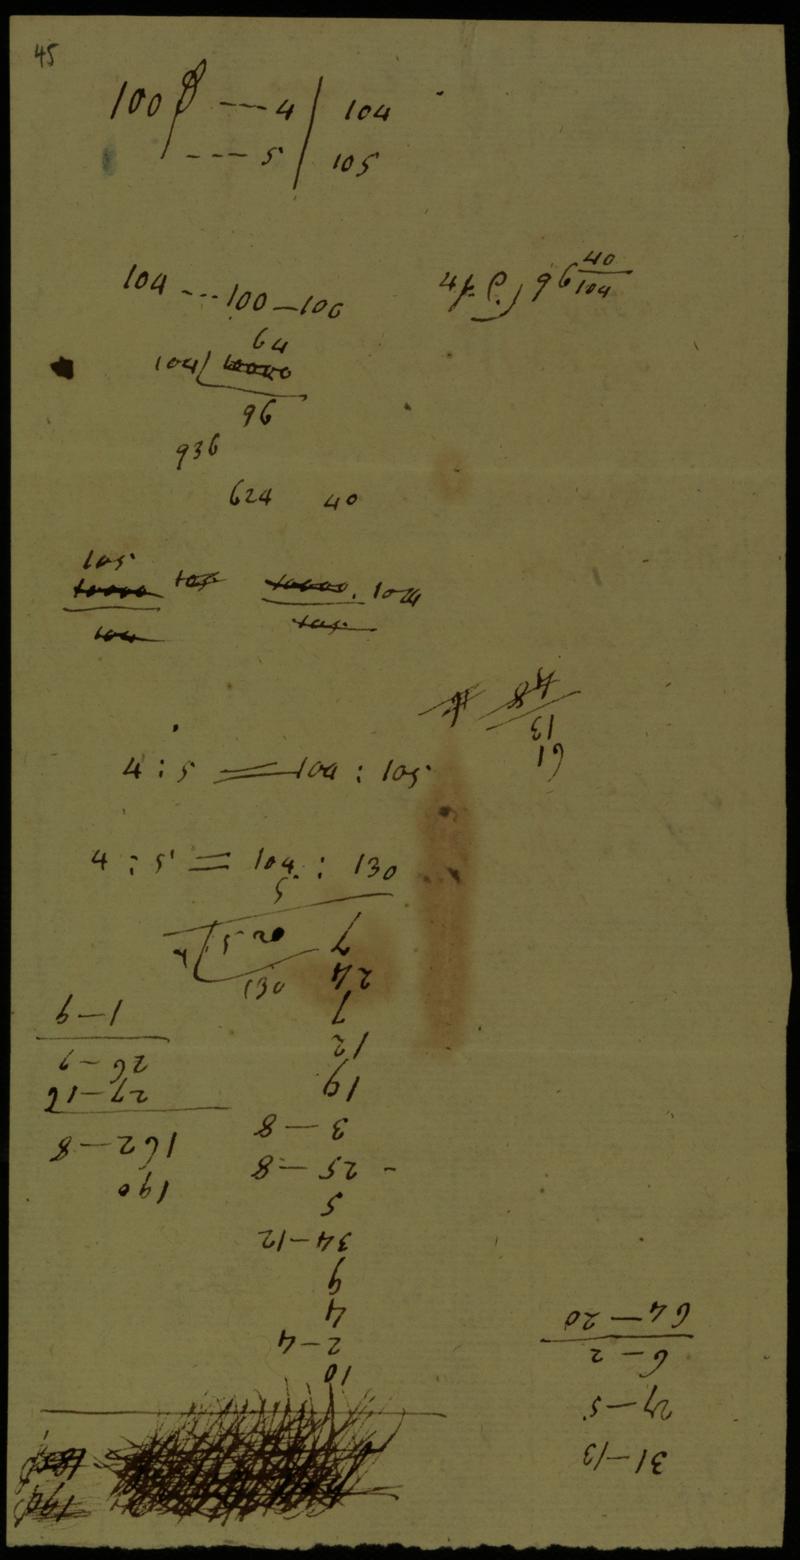 45
100 --- 4 | 104
--- 5 | 105
104 --- 100 — 100
4 p. C. 96 40/104
64
104 10000
96
936
624 40
105
10000 105 10000. 104
104 105
4 : 5 = 104 : 105
4 : 5 = 104 : 130
5
4 520
130
61
13
48
31 — 13
27 — 5
6 — 2
64 — 20
10
2 — 4
4
9
34 — 12
5
25 — 8
3 — 8
19
12
7
24
7
190
162 — 8
27 — 16
26 — 9
1 — 9